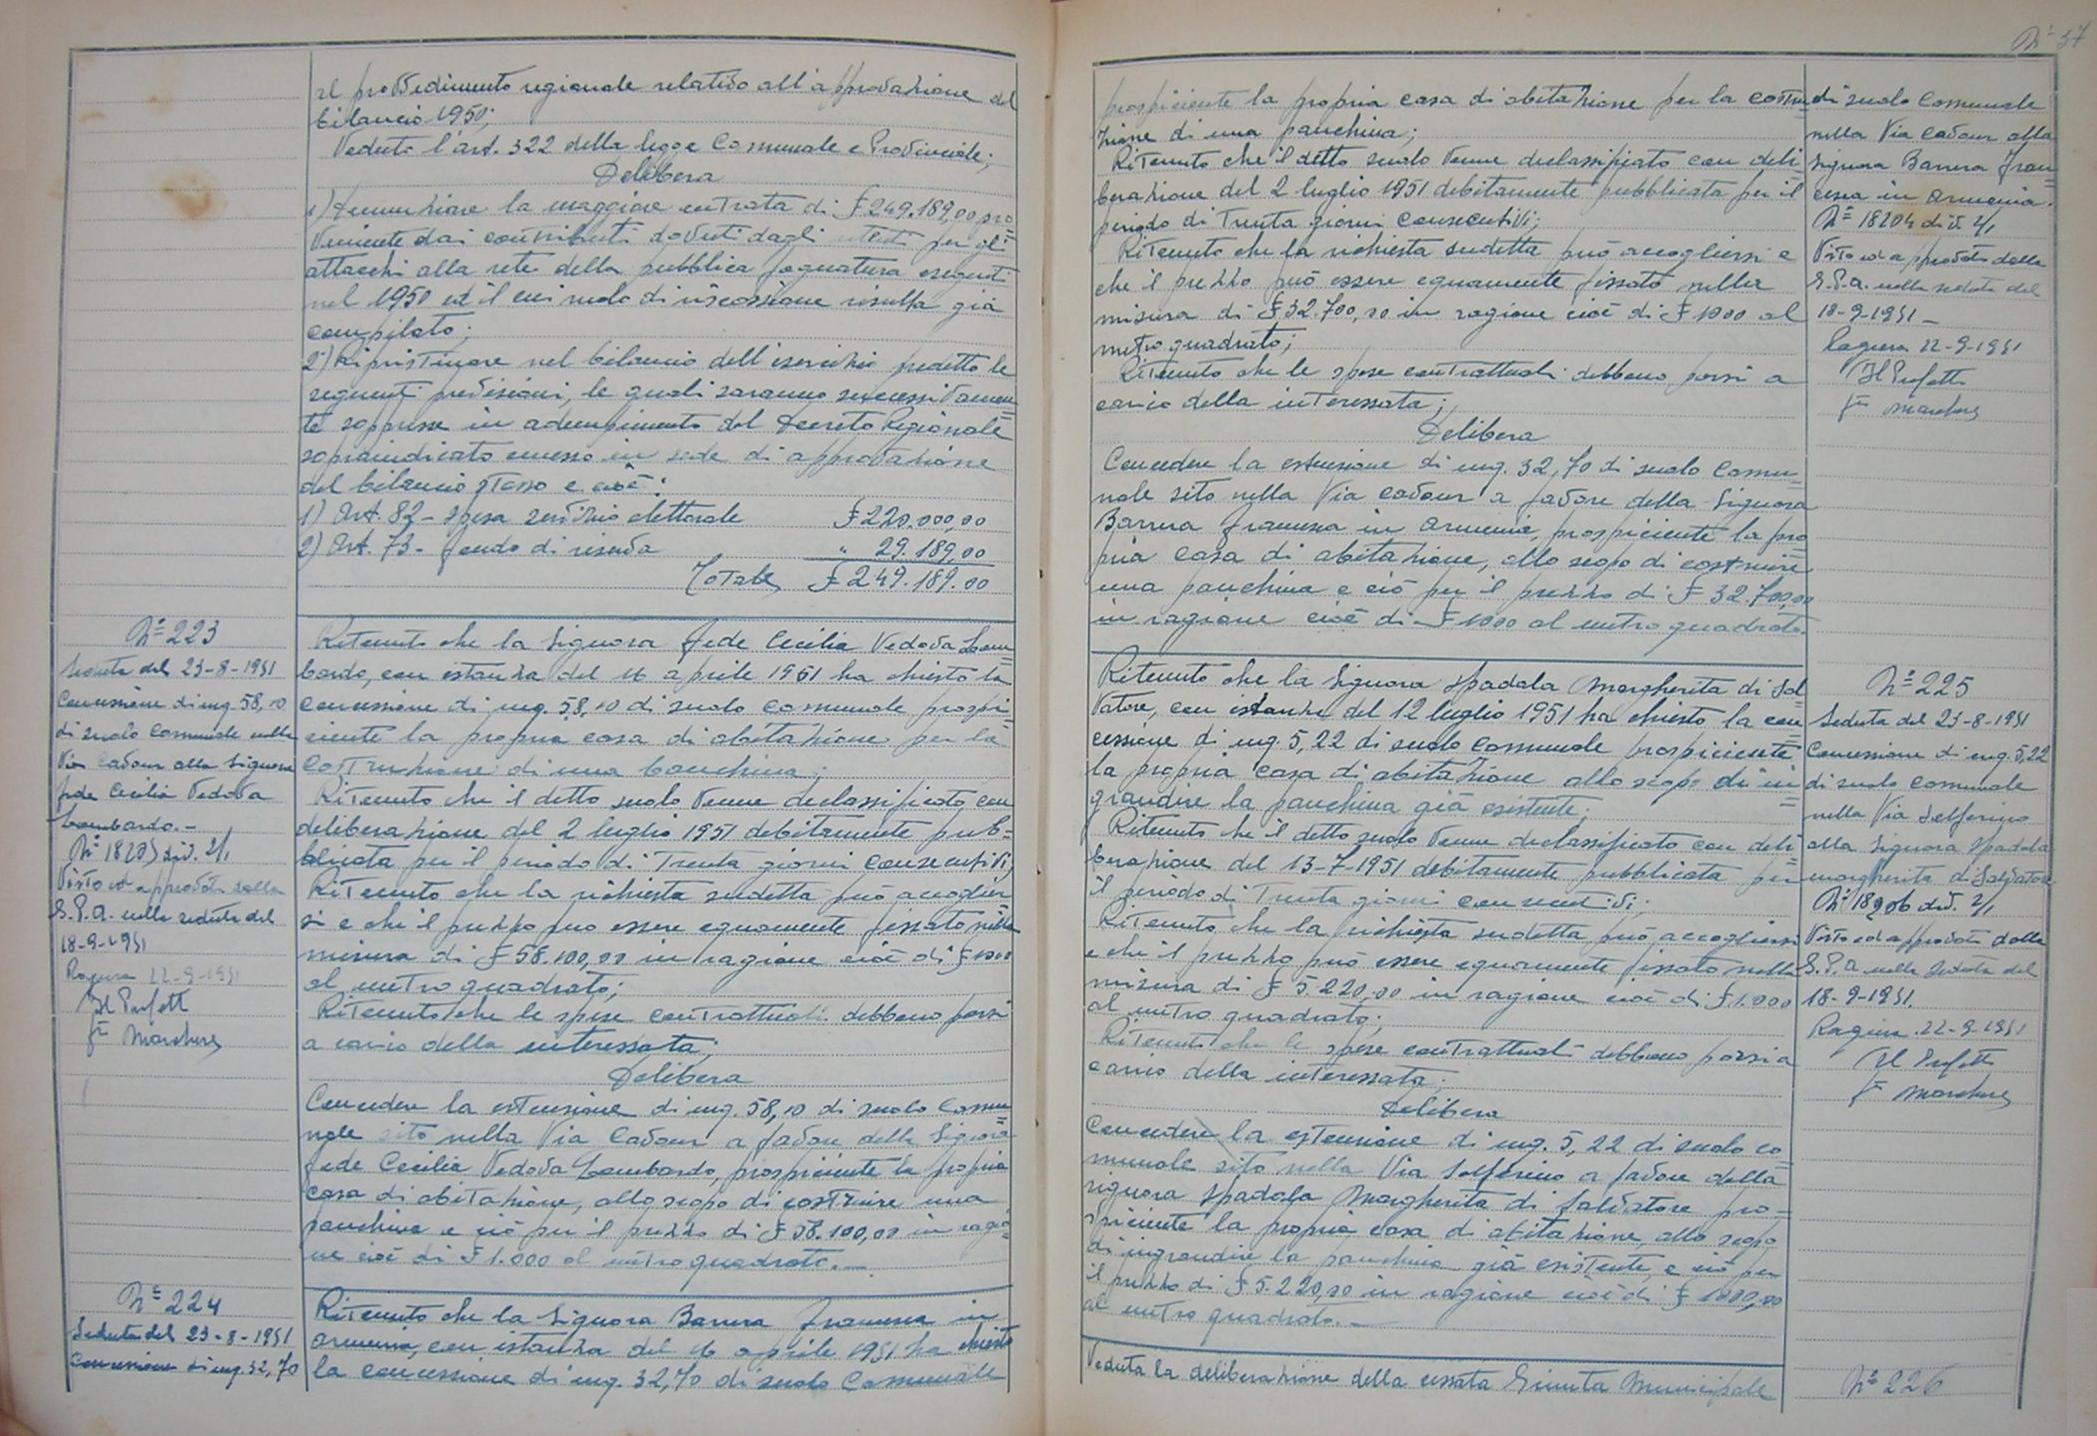 al provvedimento regionale relativo all'approvazione del
bilancio 1950;
Veduto l'art. 322 della legge Comunale e Provinciale;
Delibera
1) denunziare la maggiore entrata di £ 249.189,00 pro=
veniente dai contributi dovuti dagli utenti per gli
attacchi alla rete della pubblica fognatura eseguiti
nel 1950 ed il cui ruolo di riscossione risulta già
compilato;
2°) Ripristinare nel bilancio dell'esercizio predetto le
seguenti previsioni, le quali saranno successivamen=
te soppresse in adempimento del Decreto Regionale
sopraindicato emesso in sede di approvazione
del bilancio stesso e cioè:
1) Art. 82 - spesa servizio elettorale £ 220.000,00
2) Art. 73 - fondo di riserva " 29.189,00
Totale £ 249.189.00
N° 223
Seduta del 23-8-1951
Concessione di mq. 58,10
di suolo comunale nella
Via Cavour alla Signora
Fede Cecilia Vedova
Lombardo. -
N° 18205 div. 2/1
Visto ed approvato dalla
G.P.A. nella seduta del
18-9-1951
Ragusa 22-9-1951
Il Prefetto
Ritenuto che la Signora Fede Cecilia Vedova Lom=
bardo, con istanza del 16 aprile 1951 ha chiesto la
concessione di mq. 58,10 di suolo comunale prospi=
ciente la propria casa di abitazione per la
costruzione di una banchina;
Ritenuto che il detto suolo venne declassificato con
deliberazione del 2 luglio 1951 debitamente pub=
blicata per il periodo di Trenta giorni consecutivi;
Ritenuto che la richiesta sudetta può accoglier=
si e che il prezzo può essere equamente fissato nella
misura di £ 58.100,00 in ragione cioè di £ 1000
al metro quadrato;
Ritenuto che le spese contrattuali debbono porsi
a carico della interessata;
Delibera
Concedere la estensione di mq. 58,10 di suolo Comu=
nale sito nella Via Cavour a favore della Signora
Fede Cecilia Vedova Lombardo, prospiciente la propria
casa di abitazione, allo scopo di costruire una
panchina e ciò per il prezzo di £ 58.100,00 in ragio=
ne cioè di £ 1.000 al metro quadrato. —
N° 224
Seduta del 23-8-1951
Concessione di mq. 32,70
Ritenuto che la Signora Barrera Francesca in
Armenia, con istanza del 16 aprile 1951 ha chiesto
la concessione di mq. 32,70 di suolo Comunale
N° 37
prospiciente la propria casa di abitazione per la costru=
zione di una panchina;
Ritenuto che il detto suolo venne declassificato con deli=
berazione del 2 luglio 1951 debitamente pubblicata per il
periodo di Trenta giorni consecutivi;
Ritenuto che la richiesta sudetta può accogliersi e
che il prezzo può essere equamente fissato nella
misura di £ 32.700,00 in ragione cioè di £ 1000 al
metro quadrato;
Ritenuto che le spese contrattuali debbono porsi a
carico della interessata;
Delibera
Concedere la estensione di mq. 32,70 di suolo Comu=
nale sito nella Via Cavour a favore della Signora
Barrera Francesca in Armenia, prospiciente la pro=
pria casa di abitazione, allo scopo di costruire
una panchina e ciò per il prezzo di £ 32.700,00
in ragione cioè di £ 1000 al metro quadrato.
di suolo Comunale
nella Via Cavour alla
Signora Barrera Fran=
cesca in Armenia.
N° 18204 div. 2/1
Visto ed approvato dalla
G.P.A. nella seduta del
18-9-1951 -
Ragusa 22-9-1951
Il Prefetto
Ritenuto che la Signora Spadala Margherita di Sal=
vatore, con istanza del 12 luglio 1951 ha chiesto la con=
cessione di mq. 5,22 di suolo comunale prospiciente
la propria casa di abitazione allo scopo di in=
grandire la panchina già esistente;
Ritenuto che il detto suolo venne declassificato con deli=
berazione del 13-7-1951 debitamente pubblicata per
il periodo di Trenta giorni consecutivi;
Ritenuto che la richiesta sudetta può accogliersi
e che il prezzo può essere equamente fissato nella
misura di £ 5.220,00 in ragione cioè di £ 1.000
al metro quadrato;
Ritenuto che le spese contrattuali debbono porsi a
carico della interessata;
Delibera
Concedere la estensione di mq. 5,22 di suolo co=
munale sito nella Via Solferino a favore della
signora Spadala Margherita di Salvatore pro=
spiciente la propria casa di abitazione, allo scopo
di ingrandire la panchina già esistente, e ciò per
il prezzo di £ 5.220,00 in ragione cioè di £ 1000,00
al metro quadrato. —
N° 225
Seduta del 23-8-1951
Concessione di mq. 5,22
di suolo comunale
nella Via Solferino
alla Signora Spadala
Margherita di Salvatore
N° 18206 div. 2/1
Visto ed approvato dalla
G.P.A. nella seduta del
18-9-1951.
Ragusa 22-9-1951
Il Prefetto
Veduta la deliberazione della cessata Giunta Municipale
N° 226